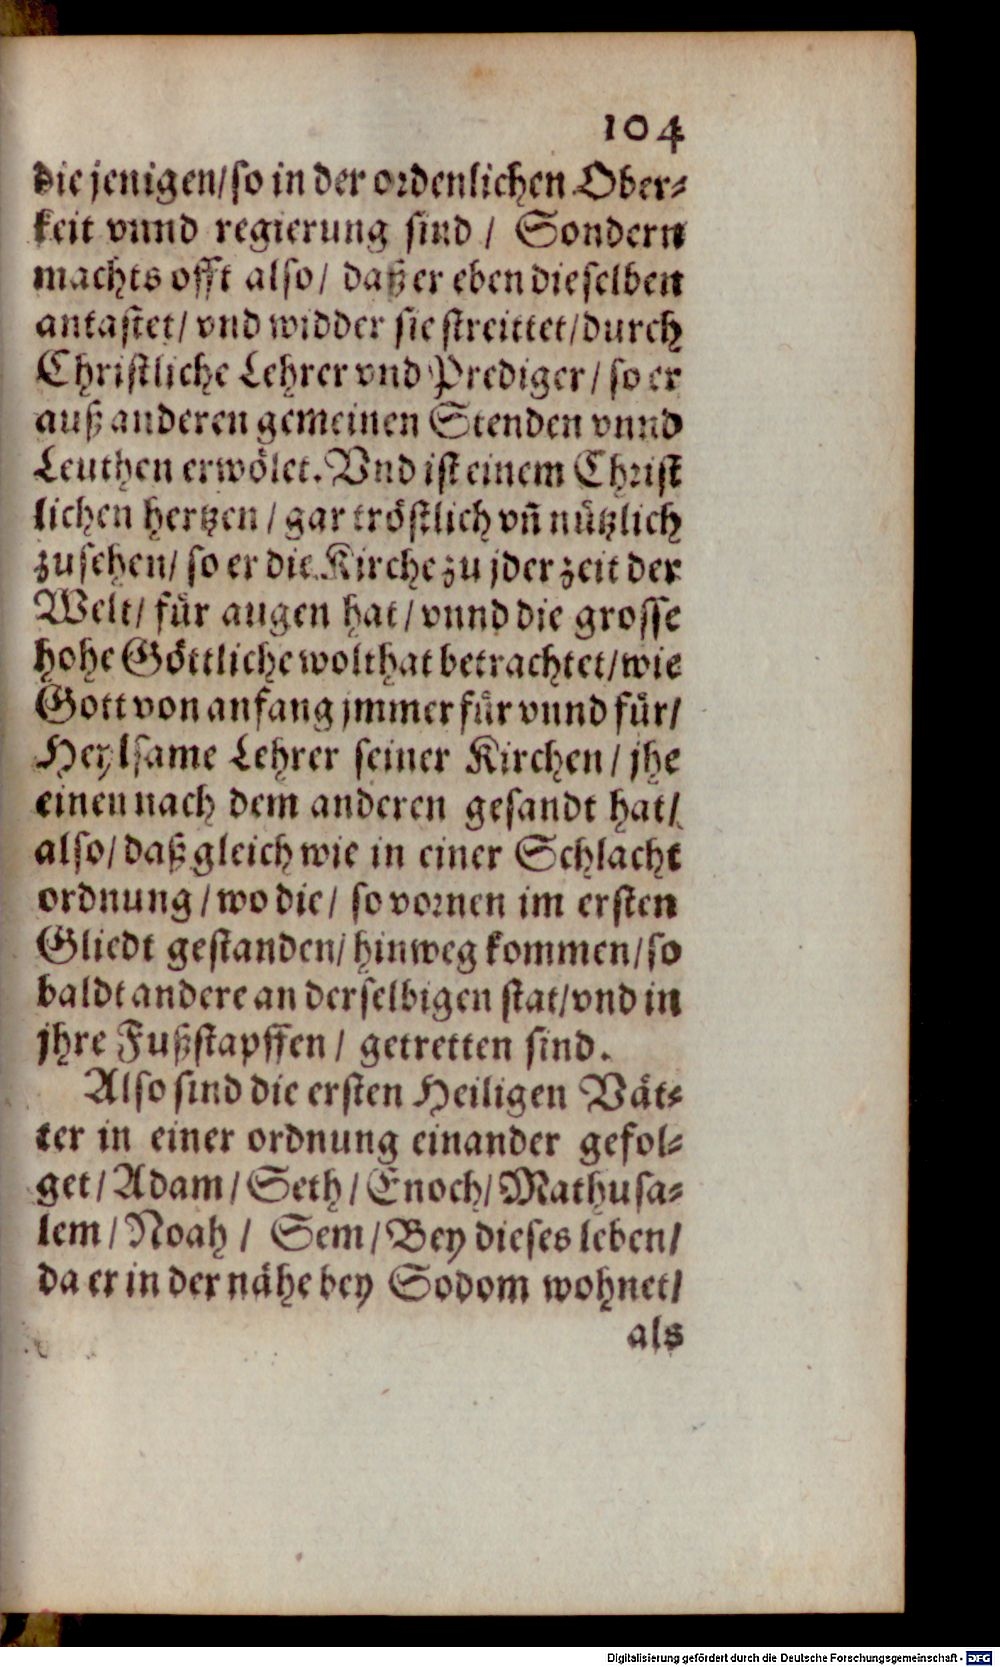 104
die jenigen/so in der ordenlichen Ober-
keit vnnd regierung sind / Sondern
machts offt also/ daß er eben dieselben
antastet/ vnd widder sie streittet/durch
Christliche Lehrer vnd Prediger / so er
auß anderen gemeinen Stenden vnnd
Leuthen erwölet. Vnd ist einem Christ
lichen hertzen / gar tröstlich vñ nützlich
zu sehen/ so er die Kirche zu jder zeit der
Welt/ für augen hat / vnnd die grosse
hohe Göttliche wolthat betrachtet/wie
Gott von anfang jmmer für vnnd für/
Heylsame Lehrer seiner Kirchen / jhe
einen nach dem anderen gesandt hat/
also/ daß gleich wie in einer Schlacht
ordnung / wo die/ so vornen im ersten
Gliedt gestanden/ hinweg kommen/so
baldt andere an derselbigen stat/vnd in
jhre Fußstapffen / getretten sind.
Also sind die ersten Heiligen Vät-
ter in einer ordnung einander gefol-
get / Adam / Seth / Enoch/ Mathusa-
lem / Noah / Sem / Bey dieses leben/
da er in der nähe bey Sodom wohnet/
als
Digitalisierung gefördert durch die Deutsche Forschungsgemeinschaft - DFG